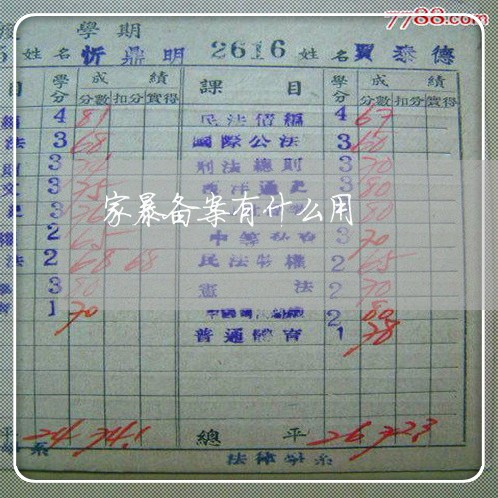 7788.com
學期
姓名 忻鼎明 2616 姓名 賈泰德
目 學分 成績 課目 學分 成績
分數 扣分 實得 分數 扣分 實得
4 81 民法債編 4 67
法 3 68 國際公法 3 60
3 刑法總則 3 70
3 75 西洋通史 3 80
3 80
家暴备案有什么用
2 65 3 70
法 2 68 68 民法物權 2 65
3 80 憲法 2 70
1 70 2 80
普通體育 1 78
平 24 74.1 總平 26 72.3
系 法律學系